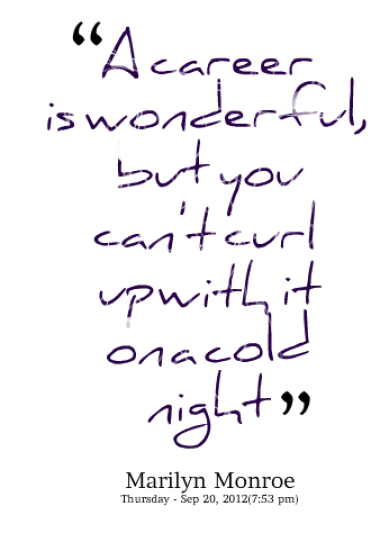 “A career
is wonderful,
but you
can't curl
up with it
on a cold
night”
Marilyn Monroe
Thursday - Sep 20, 2012(7:53 pm)